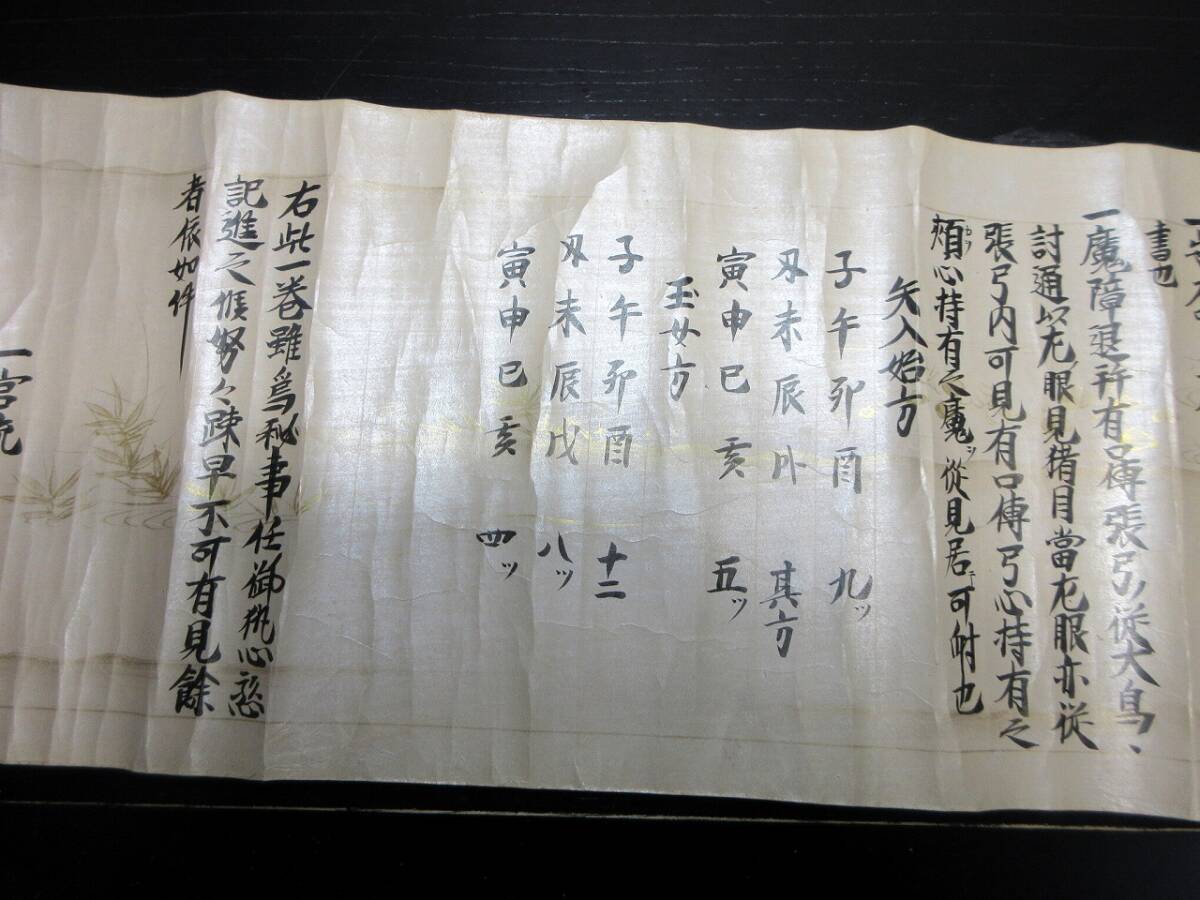 書也
一魔障退并有口傳張弓ノ從大鳥、
討通以左眼見猪目當左眼亦從
張弓内可見有口傳弓心持有之
頬心持有之魔ッ從見居テ可射也
矢入始方
子午卯酉 九ッ
丑未辰戌 其方
寅申巳亥 五ッ
玉女方
子午卯酉 十二
丑未辰戌 八ッ
寅申巳亥 四ッ
右此一巻雖爲秘事任御執心
記進之候努々疎早不可有見餘
者依如件
一宮流